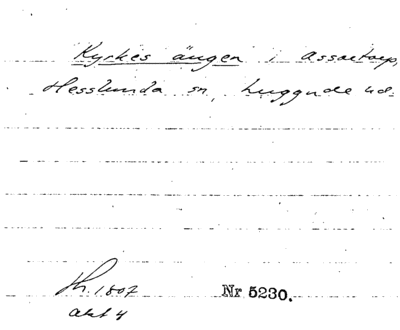 Kyrkes ängen i Assartorp,
Hesslunda sn, Luggude hd.
Sh. 1807 Nr 5230.
akt 4